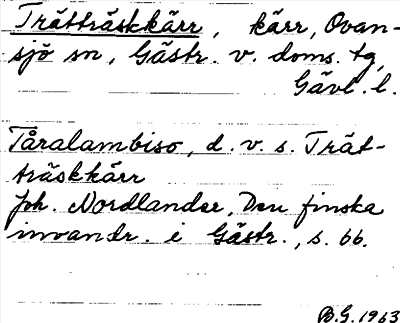 Trätträskkärr, kärr, Ovan-
sjö sn, Gästr. v. doms. tg,
Gävl. l.
Tåralambiso, d. v. s. Trät-
träskkärr
Joh. Nordlander, Den finska
invandr. i Gästr., s. 66.
B.G. 1963